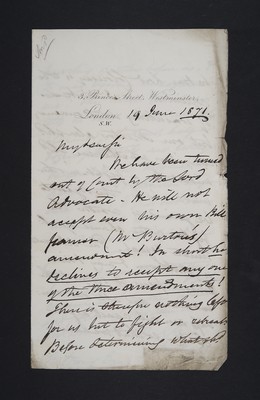 Street, Westminster,
London, 19 June 1871.
N.W.
My dear Sir
We have been turned
out of Court by the Lord
Advocate - He will not
accept even his own Bill
framer (Mr Burton's)
amendment! In short he
declines to accept any one
of the three amendments!
There is therefore nothing left
for us but to fight or retreat
Before determining what